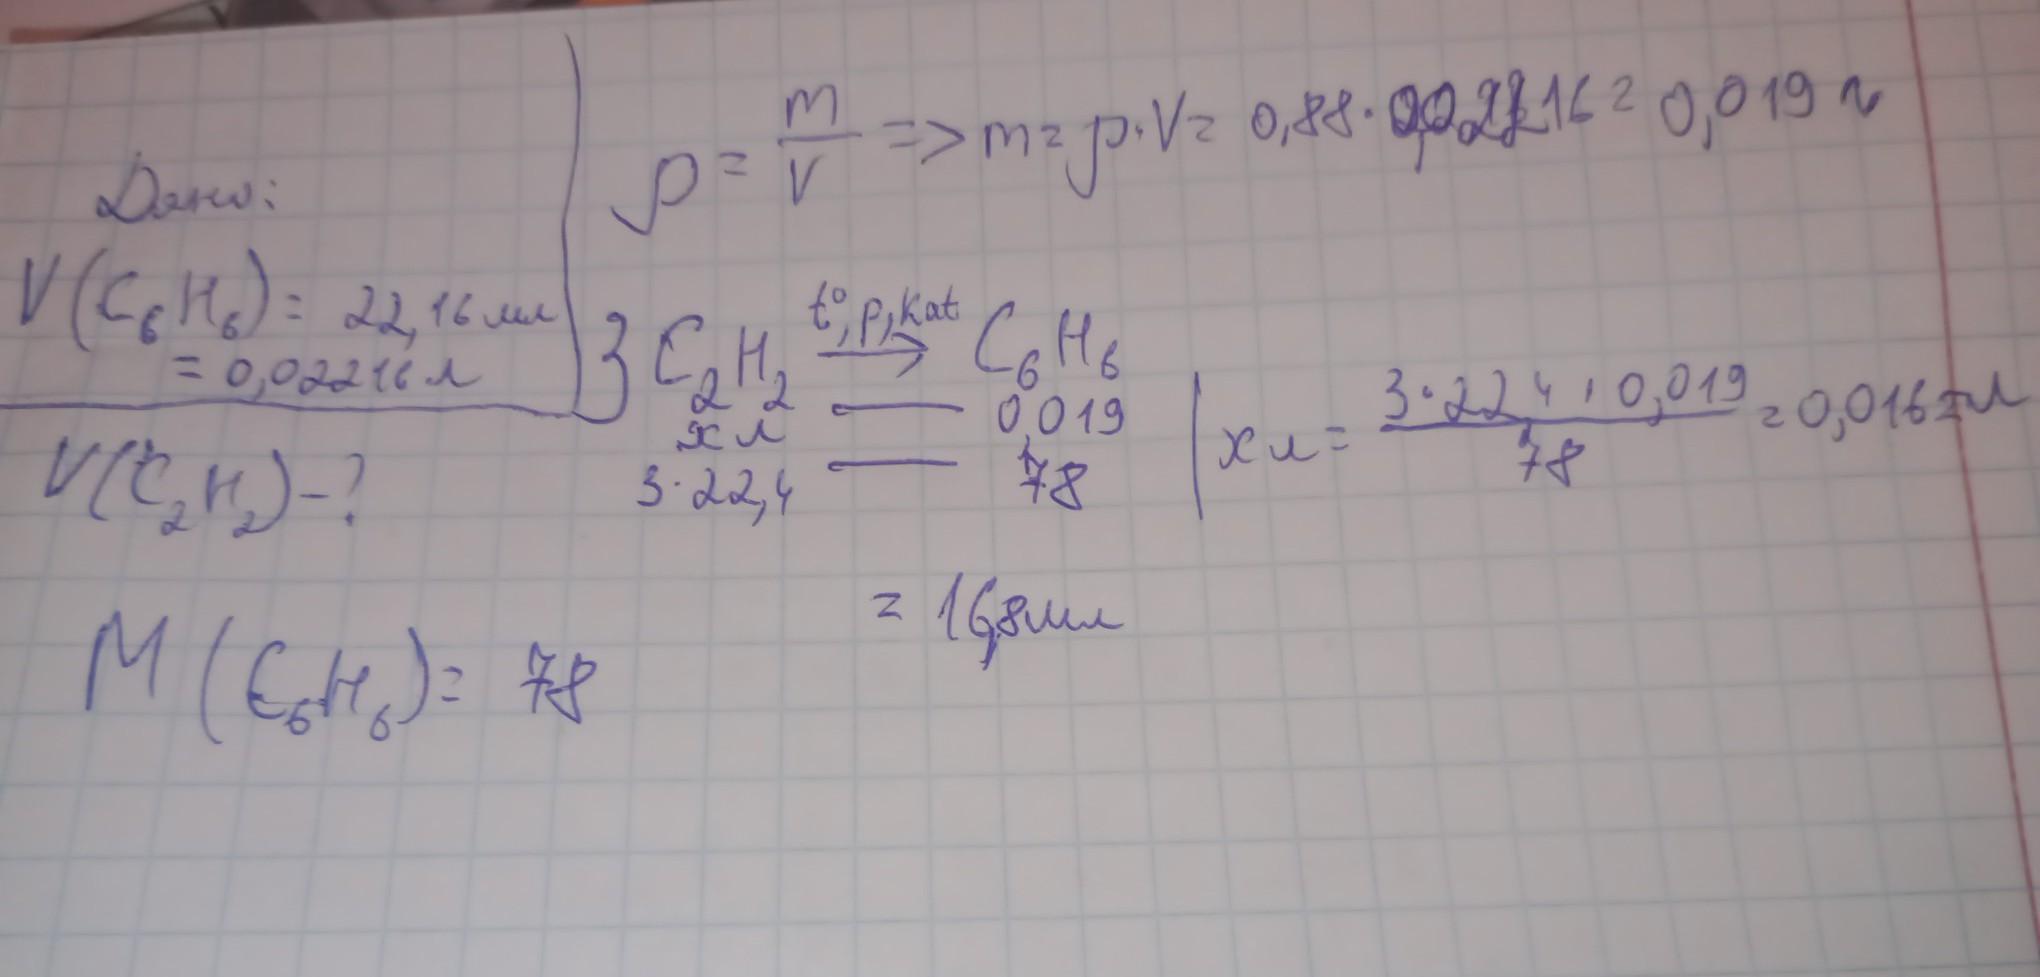 Дано:
V(C₆H₆) = 22,16 мл
= 0,02216 л
V(C₂H₂) - ?
M(C₆H₆) = 78
ρ = m/V => m = ρ·V = 0,88 · 0,02216 = 0,019 г
3C₂H₂ t°, p, kat → C₆H₆
x л — 0,019
3·22,4 — 78
x л = 3·22,4·0,019/78 = 0,016 л
= 16,8 мл